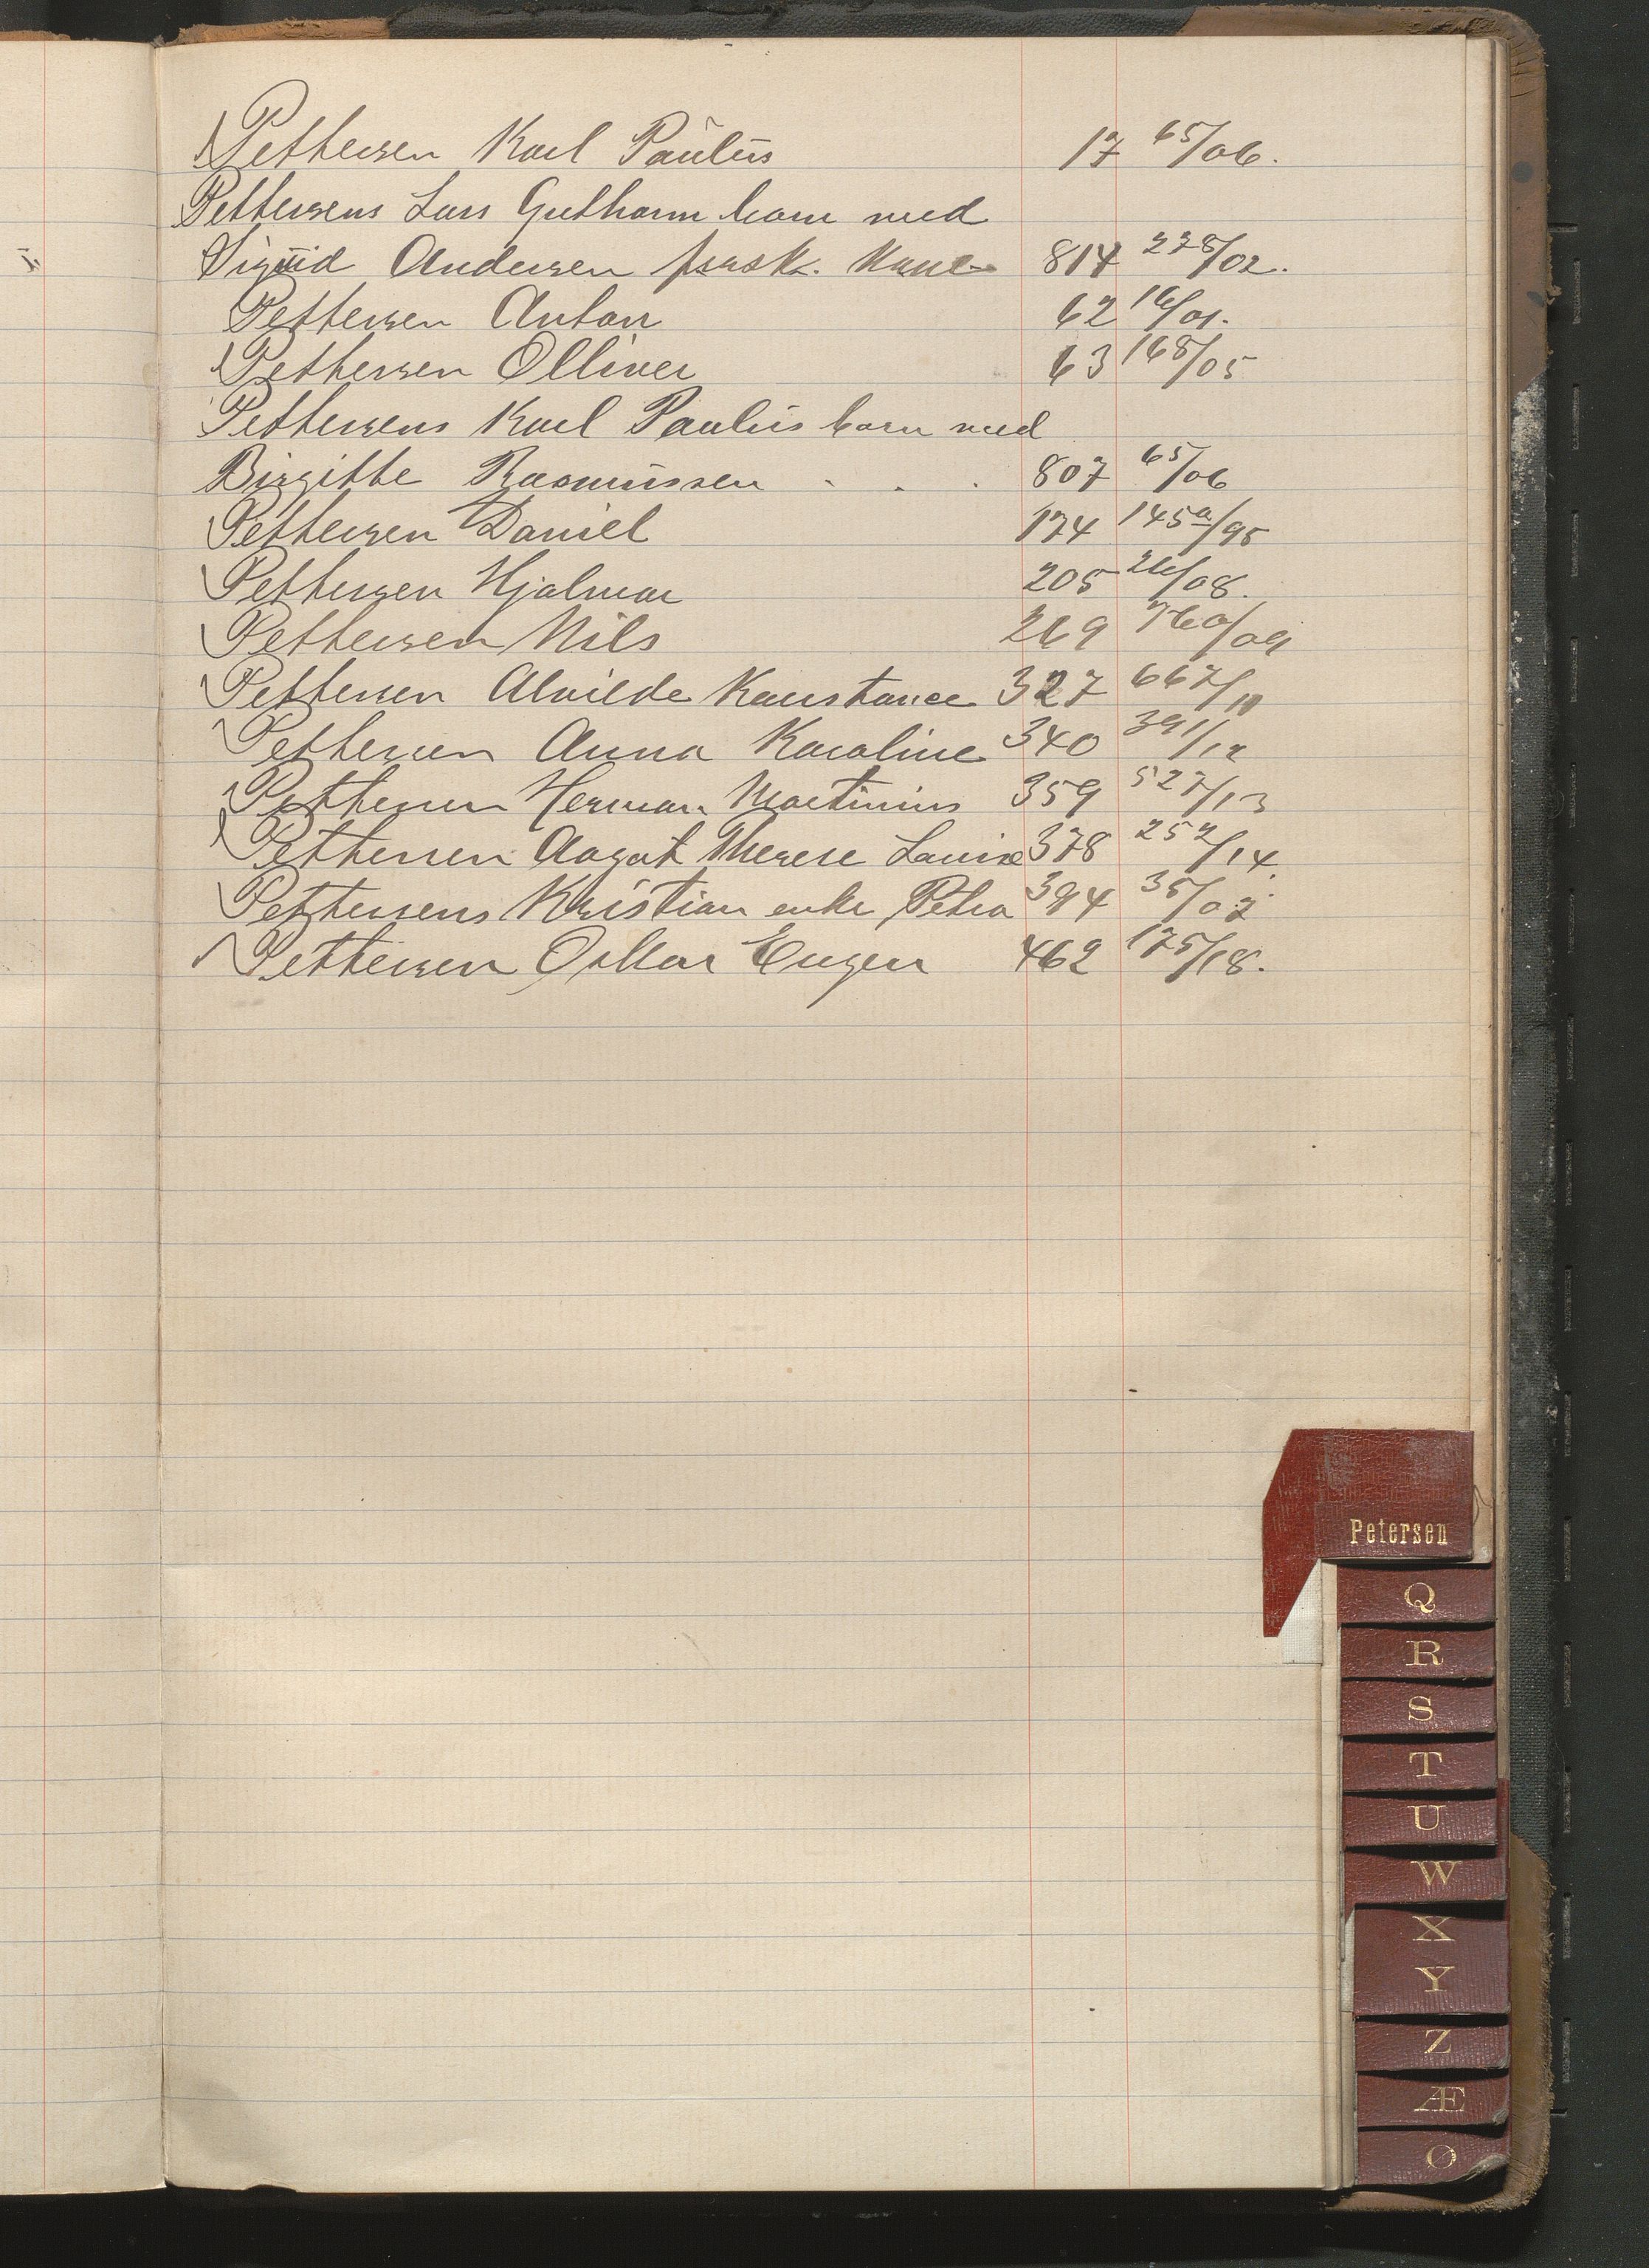 Pettersen Karl Paulus 17 65/06.
Pettersens Lars Guthorm barn med
Sigrid Andersen forsk. 814 228/02.
Pettersen Anton 62 16/01.
Pettersen Olliver 63 168/05
Pettersens Karl Paulus barn med
Birgitte Rasmussen . . . 807 65/06
Pettersen Daniel 174 145a/95
Pettersen Hjalmar 205 26/08.
Pettersen Nils 269 760/09
Pettersen Alvilde Konstance 327 667/10
Pettersen Anna Karoline 340 391/12
Pettersen Herman Martinius 359 527/13
Pettersen Aagot Therese Lovise 378 252/14.
Pettersens Kristian enke Petra 394 35/07.
Pettersen Oskar Eugen 462 175/18.
Petersen
Q
R
S
T
U
W
X
Y
Z
Æ
Ø